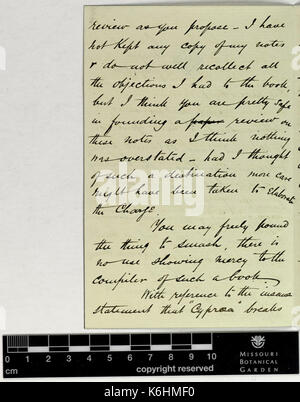 review as you propose - I have
not kept any copy of my notes
& do not well recollect all
the objections I had to the book,
but I think you are pretty safe
in founding a paper review on
these notes as I think nothing
was overstated - had I thought
of such a destination more care
might have been taken to Elaborate
the Charge.
You may freely pound
the thing to smash, there is
no use showing mercy to the
compiler of such a book.
With reference to the
statement that "Cyprœa" breaks
alamy
cm
0 1 2 3 4 5 6 7 8 9 10
copyright reserved
MISSOURI
BOTANICAL
GARDEN
Image ID: K6HMF0
www.alamy.com